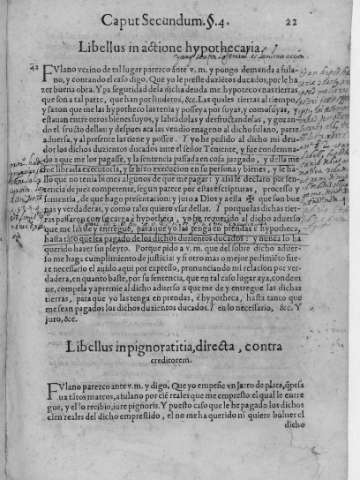 Caput Secundum. §. 4. 22
Libellus in actione hypothecaria.
22 FVlano vezino de tal lugar parezco ante v. m. y pongo demanda a fula-
no, y contando el caso digo. Que yo le preste duzietos ducados, por le ha
zer buena obra. Y pa seguridad dela dicha deuda me hypoteco unas tierras
que son a tal parte, que han por linderos, &c. Las quales tierras al tiempo,
y sazon que me las hypotheco las tenia y posseya por suyas, y como suyas,
estauan entre otros bienes suyos, y labrádolas y desfrutandolas, y gozan
do el fructo dellas: y despues aca las vendio enageno al dicho fulano, parte
aduersa, y al presente las tiene y possee. Y yo he pedido al dicho mi deu-
dor los dichos duzientos ducados ante el señor Teniente, y fue condenna-
do a que me los pagasse, y la sentencia passada en cosa juzgado, y della me
fue librada executoria, y se hizo execucion en su persona y bienes, y se ha-
llo que no tenia bienes algunos de que me pagar: y assi se declaro por sen-
tencia de juez competente, segun parece por estas escripturas, processo y
sentencia, de que hago presentacion: y juro a Dios y a esta ✠ que son bue-
nas y verdaderas, y como tales quiero vsar dellas. Y porque las dichas tier-
ras passaron con su carga e hypotheca, y yo he requerido al dicho aduerso
que me las de y entregue, para que yo las tenga en prendas e hypotheca,
hasta tato que sea pagado de los dichos duzientos ducados: y nunca lo ha
querido hazer sin pleyto. Porque pido a v. m. que del sobre dicho aduer-
so me haga cumplimiento de justicia: y si otro mas o mejor pedimiéto fue
re necessario el auido aqui por expresso, pronunciando mi relacion por ver
dadera, en quanto baste, por su sentencia, que en tal caso lugar aya, conden
ne, compela y apremie al dicho aduerso a que me de y entregue las dichas
tierras, para que yo las tenga en prendas, e hypotheca, hasta tanto que
me sean pagados los dichos duzientos ducados: en lo necessario, &c. Y
juro, &c.
Libellus in pignoratitia, directa, contra
creditorem.
FVlano parezco ante v. m. y digo. Que yo empeñe vn jarro de plata, q̃ pesa
ua tãtos marcos, a fulano por ciẽ reales que me empresto: el qual le entre
gue, y el lo recibio, iure pignoris. Y puesto caso que le he pagado los dichos
cien reales del dicho emprestido, el no me ha querido ni quiere boluer el
dicho